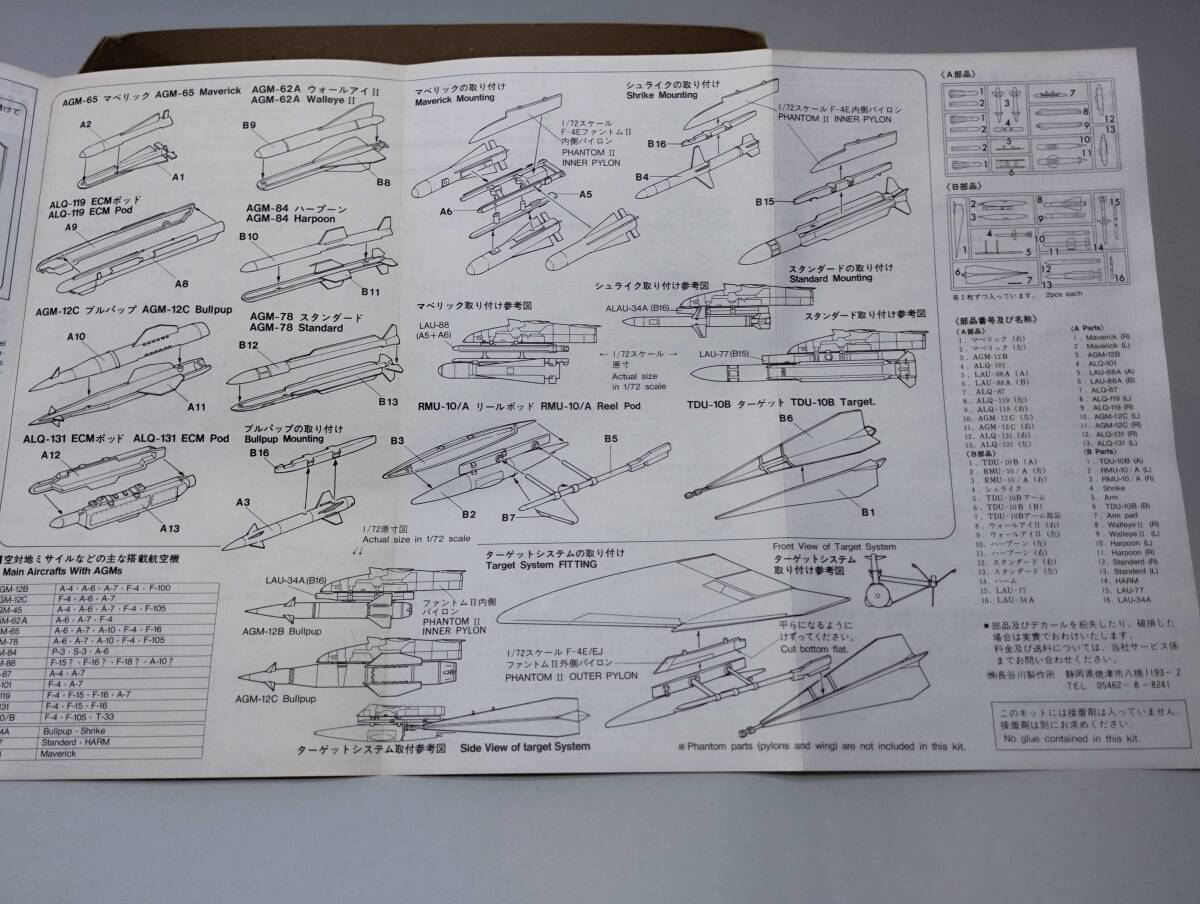 AGM-65 マベリック AGM-65 Maverick
A2
A1
AGM-62A ウォールアイⅡ
AGM-62A Walleye II
B9
B8
ALQ-119 ECMポッド
ALQ-119 ECM Pod
A9
A8
AGM-84 ハープーン
AGM-84 Harpoon
B10
B11
AGM-12C ブルパップ AGM-12C Bullpup
A10
A11
AGM-78 スタンダード
AGM-78 Standard
B12
B13
ALQ-131 ECMポッド ALQ-131 ECM Pod
A12
A13
ブルパップの取り付け
Bullpup Mounting
B16
A3
マベリックの取り付け
Maverick Mounting
1/72スケール
F-4EファントムⅡ
内側パイロン
PHANTOM II
INNER PYLON
A5
A6
シュライクの取り付け
Shrike Mounting
B16
B4
1/72スケール F-4E内側パイロン
PHANTOM II INNER PYLON
B15
スタンダードの取り付け
Standard Mounting
マベリック取り付け参考図
LAU-88
(A5+A6)
シュライク取り付け参考図
ALAU-34A (B16)
スタンダード取り付け参考図
LAU-77(B15)
← 1/72スケール →
原寸
Actual size
in 1/72 scale
RMU-10/A リールポッド RMU-10/A Reel Pod
B3
B5
B2
B7
TDU-10B ターゲット TDU-10B Target.
B6
B1
1/72原寸図
Actual size in 1/72 scale
LAU-34A(B16)
AGM-12B Bullpup
ファントムⅡ内側
パイロン
PHANTOM II
INNER PYLON
AGM-12C Bullpup
ターゲットシステム取付参考図 Side View of target System
ターゲットシステムの取り付け
Target System FITTING
1/72スケール F-4E/EJ
ファントムⅡ外側パイロン
PHANTOM II OUTER PYLON
平らになるように
けずってください。
Cut bottom flat.
Front View of Target System
ターゲットシステム
取り付け参考図
※Phantom parts (pylons and wing) are not included in this kit.
空対地ミサイルなどの主な搭載航空機
Main Aircrafts With AGMs
GM-12B A-4・A-6・A-7・F-4・F-100
GM-12C F-4・A-6・A-7
GM-45 A-4・A-6・A-7・F-4・F-105
GM-62A A-6・A-7・F-4
M-65 A-6・A-7・A-10・F-4・F-16
M-78 A-6・A-7・A-10・F-4・F-105
M-84 P-3・S-3・A-6
M-88 F-15?・F-16?・F-18?・A-10?
-87 A-4・A-7
-101 F-4・A-7
119 F-4・F-15・F-16・A-7
131 F-4・F-15・F-16
0/B F-4・F-105・T-33
4A Bullpup・Shrike
7 Standerd・HARM
Maverick
〈A部品〉
1
2
1
2
1
3
4
5
6
7
8
9
10
11
12
13
〈B部品〉
1
2
3
4
5
6
7
8
9
10
11
12
13
14
15
16
各2枚ずつ入っています。 2pcs each
〈部品番号及び名称〉
〈A部品〉
1. マベリック (右)
2. マベリック (左)
3. AGM-12B
4. ALQ-101
5. LAU-88A (A)
6. LAU-88A (B)
7. ALQ-87
8. ALQ-119 (左)
9. ALQ-119 (右)
10. AGM-12C (左)
11. AGM-12C (右)
12. ALQ-131 (右)
13. ALQ-131 (左)
〈B部品〉
1. TDU-10B (A)
2. RMU-10/A (左)
3. RMU-10/A (右)
4. シュライク
5. TDU-10Bアーム
6. TDU-10B (B)
7. TDU-10Bアーム部品
8. ウォールアイⅡ (右)
9. ウォールアイⅡ (左)
10. ハープーン (左)
11. ハープーン (右)
12. スタンダード (右)
13. スタンダード (左)
14. ハーム
15. LAU-77
16. LAU-34A
(A Parts)
1. Maverick (R)
2. Maverick (L)
3. AGM-12B
4. ALQ-101
5. LAU-88A (A)
6. LAU-88A (B)
7. ALQ-87
8. ALQ-119 (L)
9. ALQ-119 (R)
10. AGM-12C (L)
11. AGM-12C (R)
12. ALQ-131 (R)
13. ALQ-131 (L)
(B Parts)
1. TDU-10B (A)
2. RMU-10/A (L)
3. RMU-10/A (R)
4. Shrike
5. Arm
6. TDU-10B (B)
7. Arm part
8. Walleye II (R)
9. Walleye II (L)
10. Harpoon (L)
11. Harpoon (R)
12. Standerd (R)
13. Standerd (L)
14. HARM
15. LAU-77
16. LAU-34A
■部品及びデカールを紛失したり、破損した
場合は実費でおわけいたします。
料金及び送料については、当社サービス係
までお問い合わせください。
㈱長谷川製作所 静岡県焼津市八楠1193-2
TEL 05462-8-8241
このキットには接着剤は入っていません。
接着剤は別にお求めください。
No glue contained in this kit.